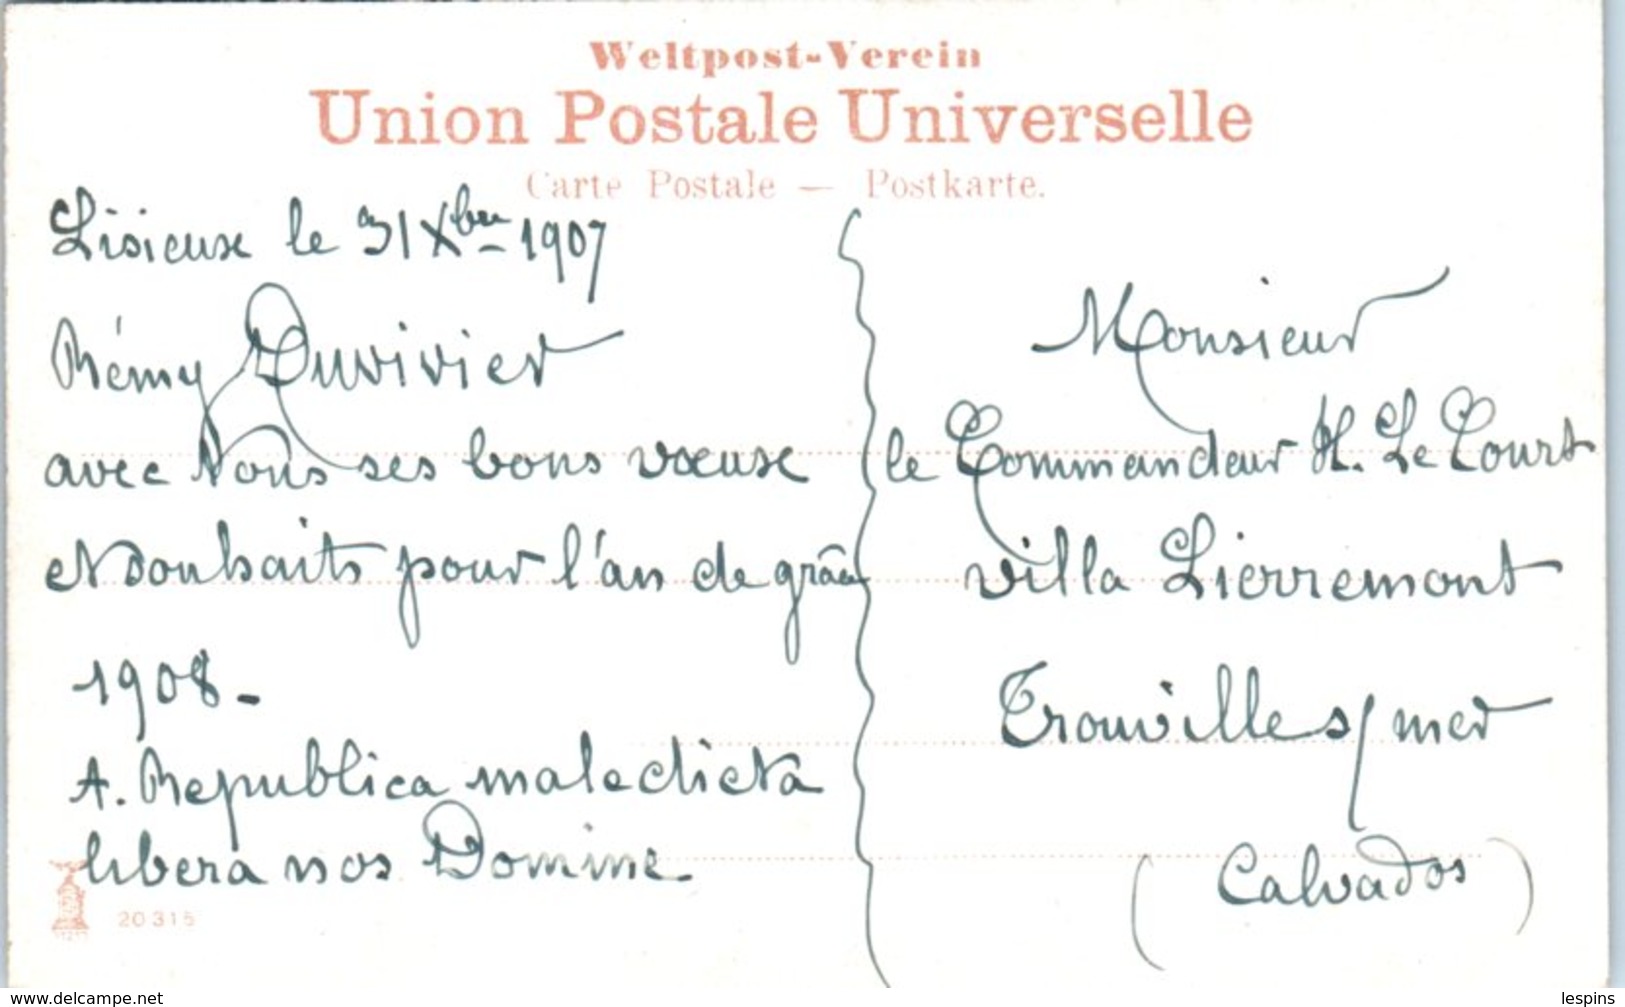 Weltpost-Verein
Union Postale Universelle
Carte Postale — Postkarte.
Lisieux le 31 Xbre 1907
Rémy Duvivier
avec tous ses bons vœux
et souhaits pour l'an de grâce
1908-
A. Republica maledicta
libera nos Domine
20315
Monsieur
le Commandeur H. Le Court
villa Lierremont
Trouville s/ mer
(Calvados)
www.delcampe.net
lespins